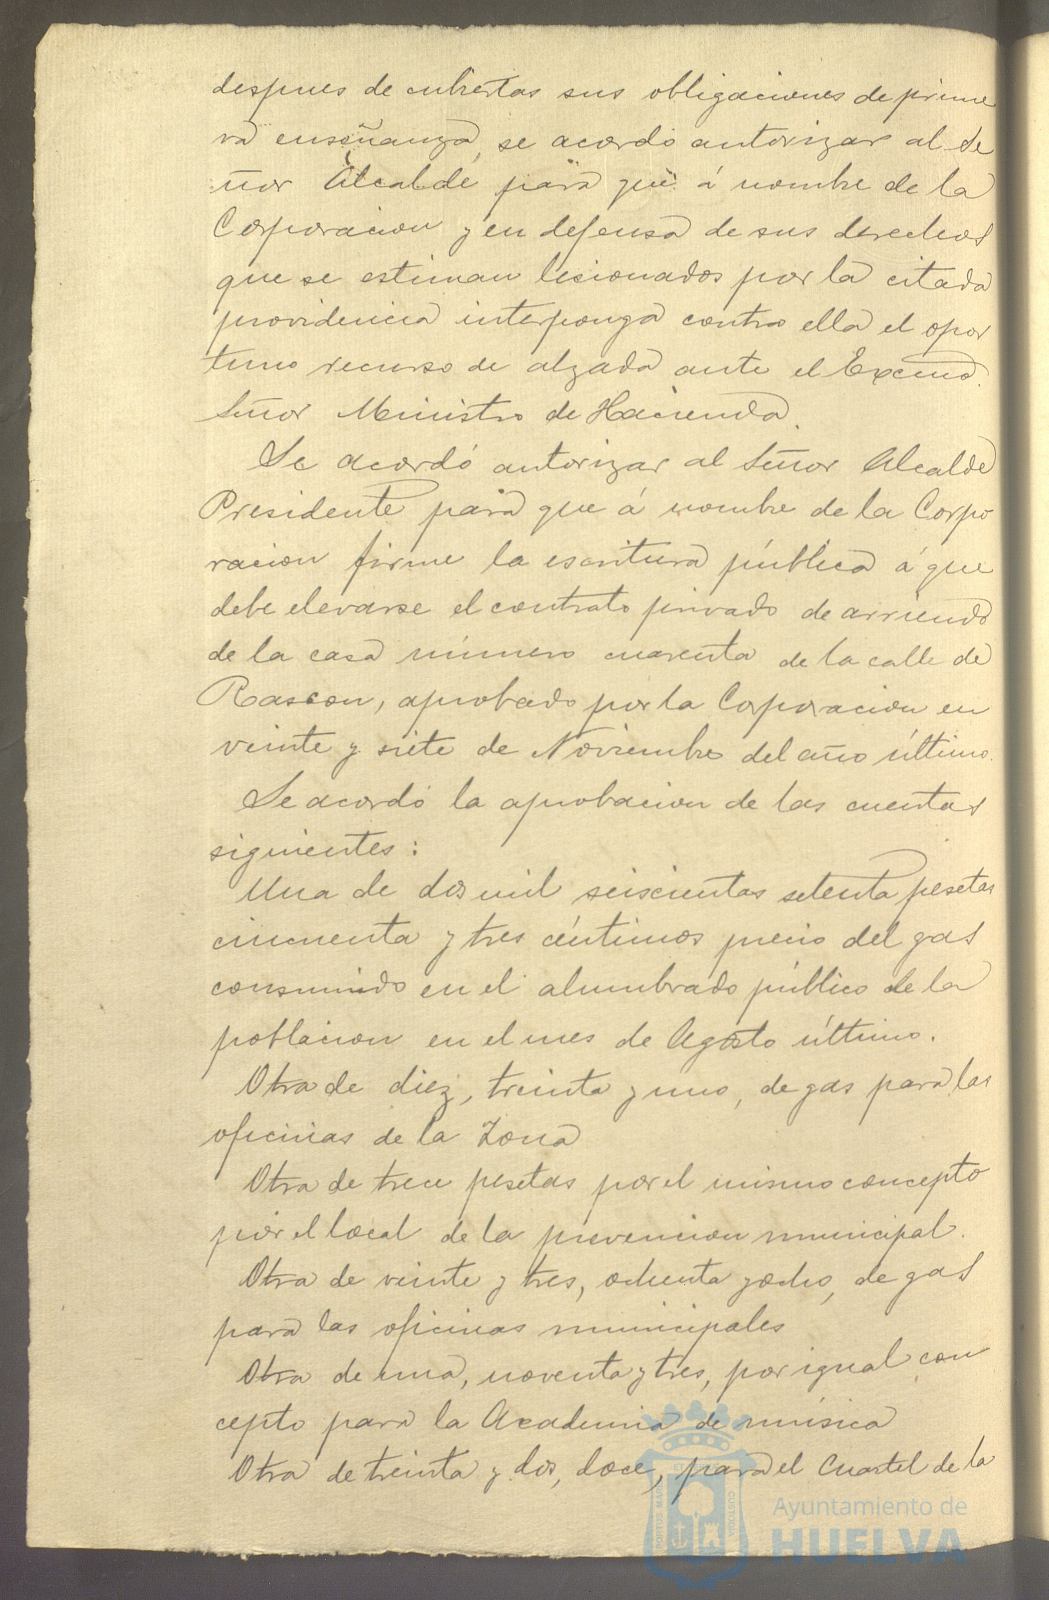 despues de cubiertas sus obligaciones de prime
ra enseñanza, se acordó autorizar al Se
ñor Alcalde para que á nombre de la
Corporacion y en defensa de sus derechos
que se estiman lesionados por la citada
providencia interponga contra ella el opor
tuno recurso de alzada ante el Excmo.
Señor Ministro de Hacienda.
Se acordó autorizar al Señor Alcalde
Presidente para que á nombre de la Corpo
racion firme la escritura pública á que
debe elevarse el contrato privado de arriendo
de la casa número cuarenta de la calle de
Rascon, aprobado por la Corporacion en
veinte y siete de Noviembre del año último.
Se acordó la aprobacion de las cuentas
siguientes:
Una de dos mil seiscientas setenta pesetas
cincuenta y tres céntimos precio del gas
consumido en el alumbrado público de la
poblacion en el mes de Agosto último.
Otra de diez, treinta y uno, de gas para las
oficinas de la Zona
Otra de trece pesetas por el mismo concepto
por el local de la prevencion municipal.
Otra de veinte y tres, ochenta y ocho, de gas
para las oficinas municipales
Otra de una, noventa y tres, por igual con
cepto para la Academia de música
Otra de treinta y dos, doce, para el Cuartel de la
Ayuntamiento de
HUELVA